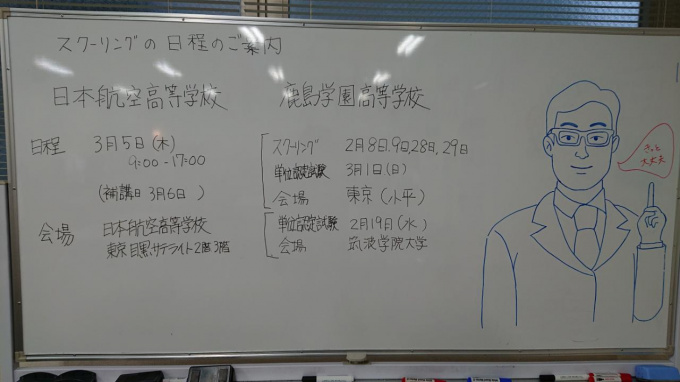 スクーリングの日程のご案内
日本航空高等学校
日程 3月5日(木)
9:00-17:00
(補講日 3月6日 )
会場 日本航空高等学校
東京目黒サテライト2階3階
鹿島学園高等学校
スクーリング 2月8日.9日,28日,29日
単位認定試験 3月1日(日)
会場 東京(小平)
単位認定試験 2月19日(水)
会場 筑波学院大学
きっと
大丈夫